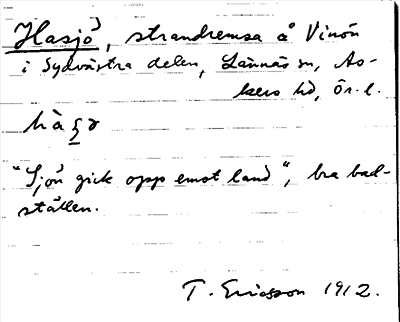 Hasjö, strandremsa å Vinön
i sydvästra delen, Lännäs sn, As-
kers hd, Ör. l.
"Sjön gick opp emot land", bra bad-
ställen.
T. Ericsson 1912.